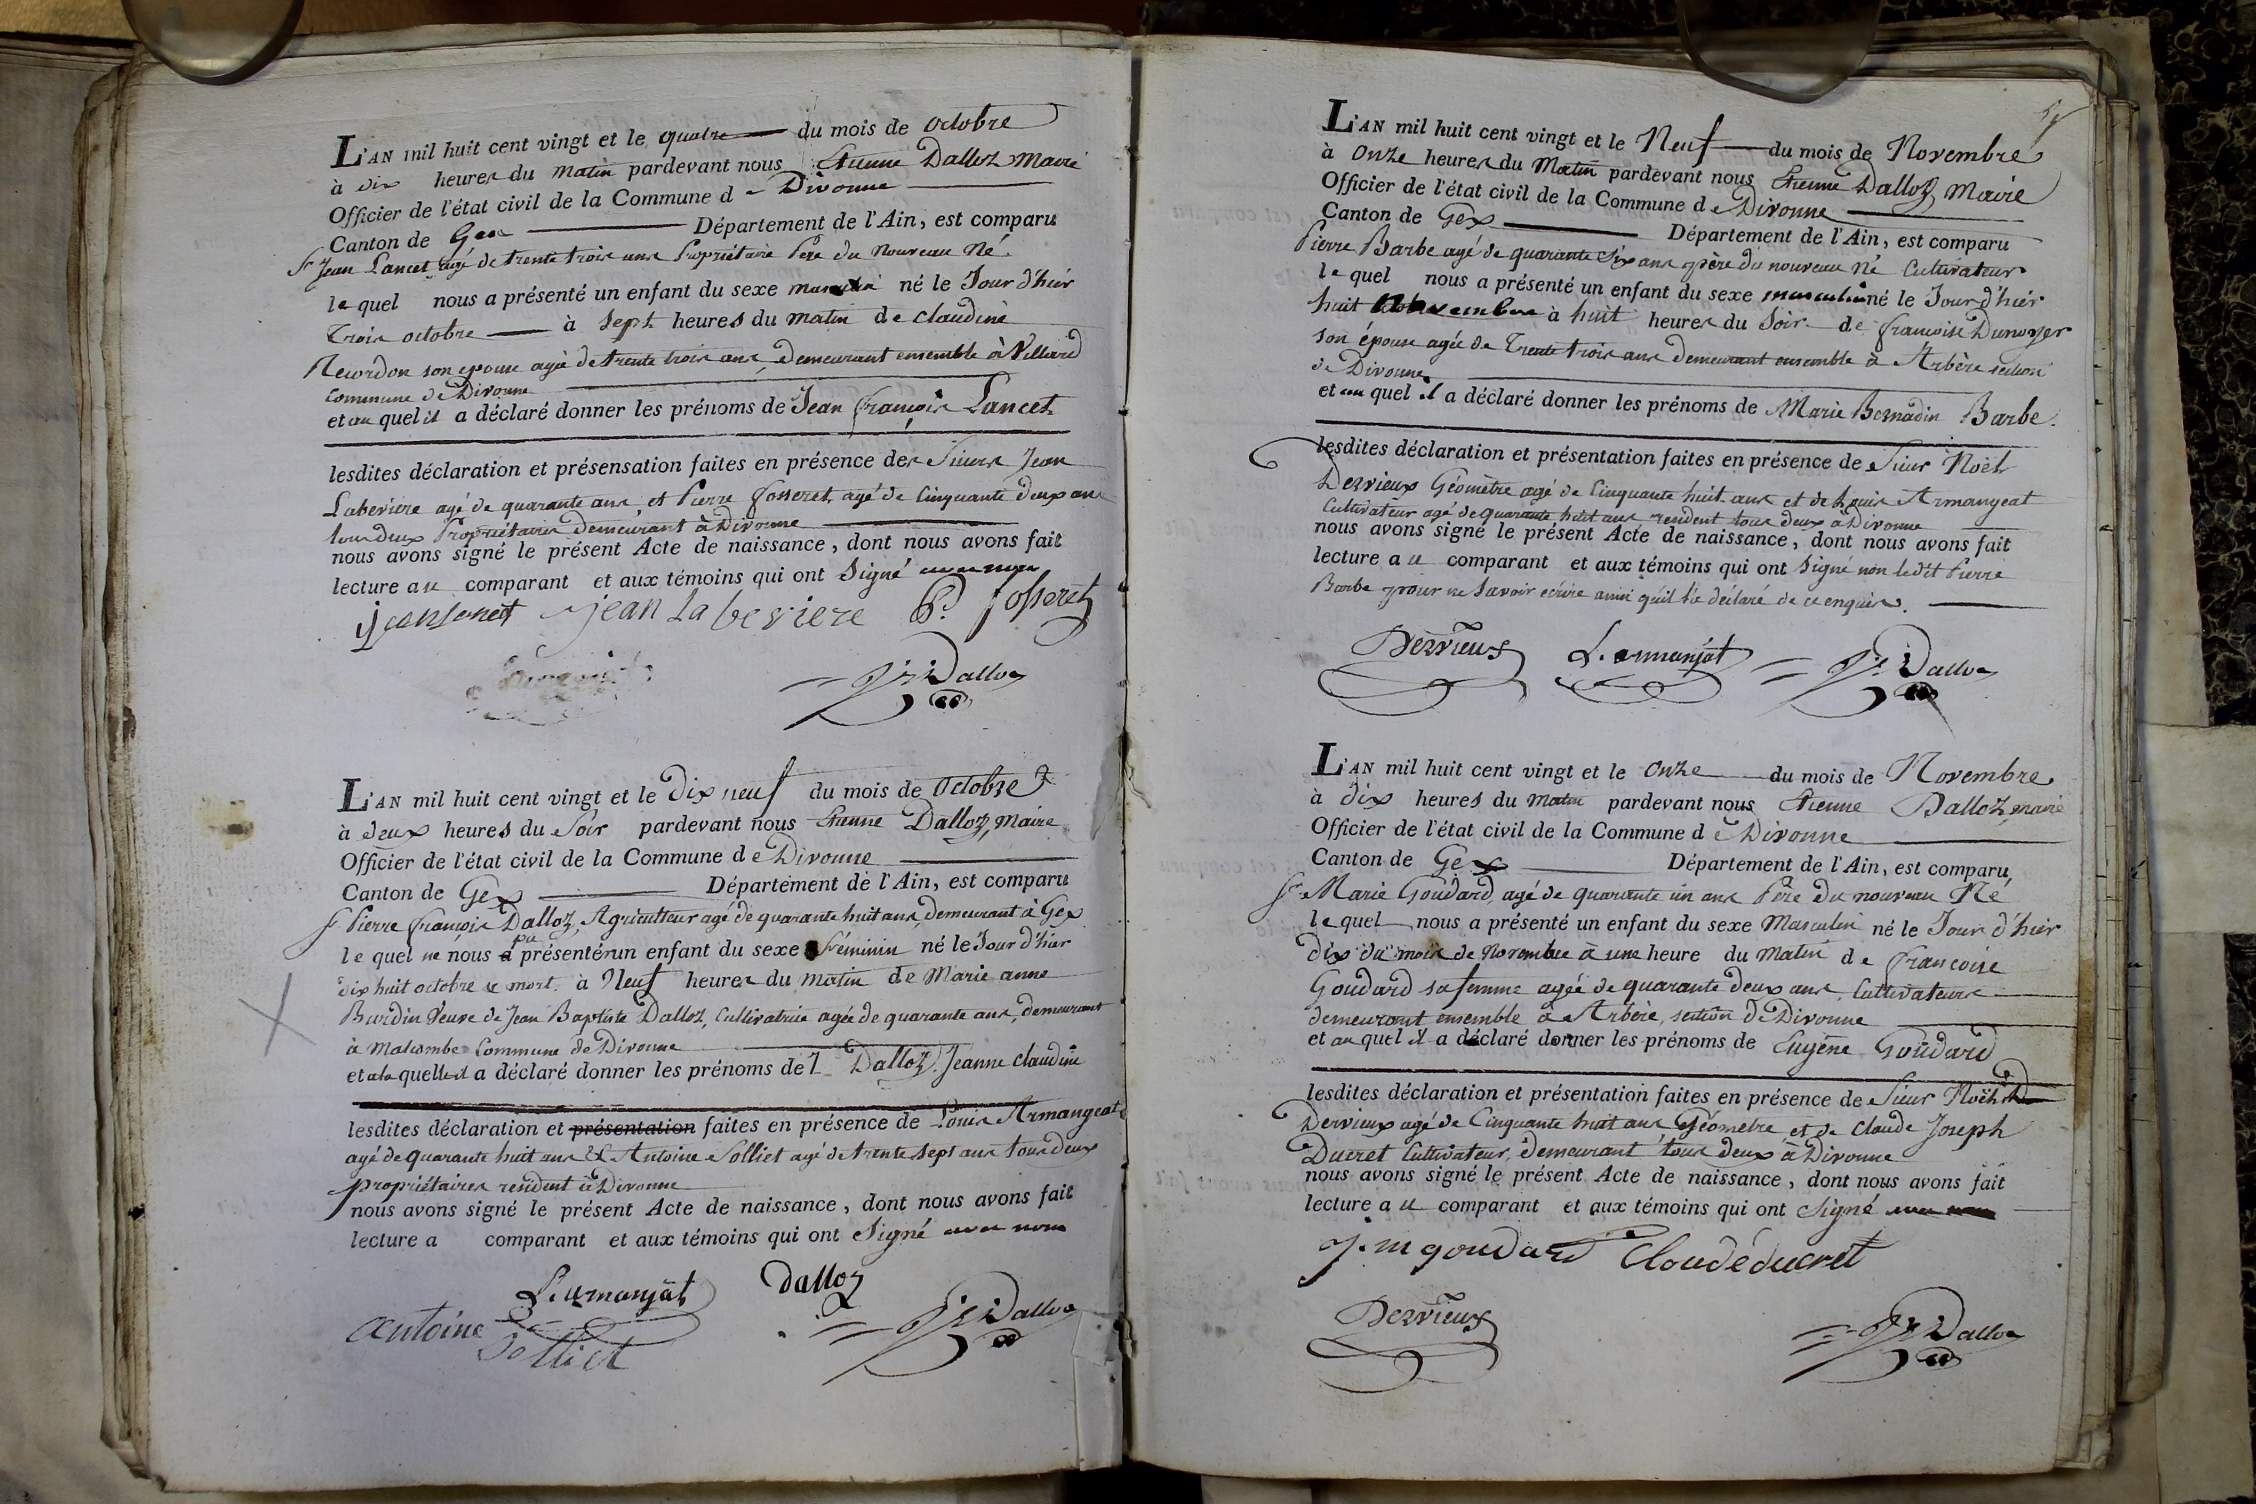 L'AN mil huit cent vingt et le quatre du mois de Octobre
à dix heures du matin pardevant nous Etienne Dalloz Maire
Officier de l'état civil de la Commune de Divonne
Canton de Gex Département de l'Ain, est comparu
Sr Jean Lancet agé de trente trois ans Propriétaire Père du Nouveau Né.
le quel nous a présenté un enfant du sexe masculin né le Jour d'hiér
Trois octobre à Sept heures du matin de claudine
son epouse agée de trente trois ans, demeurant ensemble à Villard
commune de Divonne
et au quel il a déclaré donner les prénoms de Jean françois Lancet
lesdites déclaration et présensation faites en présence des Sieurs Jean
Labevière agé de quarante ans, et Pierre fosseret agé de Cinquante deux ans
tous deux Propriétaires demeurant à Divonne
nous avons signé le présent Acte de naissance, dont nous avons fait
lecture au comparant et aux témoins qui ont Signé avec nous
jean la beviere P. fosseret
Dalloz
L'AN mil huit cent vingt et le Dix neuf du mois de Octobre
à deux heures du Soir pardevant nous Etienne Dalloz, Maire
Officier de l'état civil de la Commune de Divonne
Canton de Gex Département de l'Ain, est comparu
Sr Pierre françois Dalloz, Agriculteur agé de quarante huit ans, demeurant à Gex
le quel ne nous a pu présenter un enfant du sexe Féminin né le Jour d'hier
dix huit octobre et mort. à Neuf heures du matin de Marie anne
Burdin Veuve de Jean Baptiste Dalloz, Cultivatrice agée de quarante ans, demeurant
à Malcombe Commune de Divonne
et a la quelle il a déclaré donner les prénoms de Dalloz. Jeanne claudine
lesdites déclaration et présentation faites en présence de Louis Armangeat
agé de quarante huit ans & Antoine Solliet agé de trente sept ans tous deux
propriétaires resident à Divonne
nous avons signé le présent Acte de naissance, dont nous avons fait
lecture a comparant et aux témoins qui ont Signé avec nous
L. armanjat dalloz
antoine Dalloz
Solliet
L'AN mil huit cent vingt et le Neuf du mois de Novembre
à Onze heures du Matin pardevant nous Etienne Dalloz Maire
Officier de l'état civil de la Commune de Divonne
Canton de Gex Département de l'Ain, est comparu
Pierre Barbe agé de quarante Six ans père du nouveau Né Cultivateur
le quel nous a présenté un enfant du sexe masculin né le Jour d'hiér
huit Novembre à huit heures du Soir de françoise Dunoyer
son épouse agée de Trente trois ans demeurant ensemble à Arbère section
de Divonne
et au quel il a déclaré donner les prénoms de Marie Bernadin Barbe.
lesdites déclaration et présentation faites en présence de Sieur Noël
Dervieux Géomètre agé de Cinquante huit ans et de Louis Armangeat
Cultivateur agé de quarante huit ans resident tous deux à Divonne
nous avons signé le présent Acte de naissance, dont nous avons fait
lecture au comparant et aux témoins qui ont Signé non ledit Pierre
Barbe pour ne Savoir écrire ainsi qu'il l'a déclaré de ce enquis.
Dervieux L. armanjat Dalloz
L'AN mil huit cent vingt et le Onze du mois de Novembre
à dix heures du matin pardevant nous Etienne Dalloz, maire
Officier de l'état civil de la Commune de Divonne
Canton de Gex Département de l'Ain, est comparu
Sr Marie Goudard agé de quarante un ans Père du nouveau Né
le quel nous a présenté un enfant du sexe Masculin né le Jour d'hiér
dix du mois de Novembre à une heure du Matin de françoise
Goudard sa femme agée de quarante deux ans, Cultivateurs
demeurant ensemble à Arbère, section de Divonne
et au quel il a déclaré donner les prénoms de Eugène Goudard
lesdites déclaration et présentation faites en présence de Sieur Noël
Dervieux agé de Cinquante huit ans Géomètre et de Claude Joseph
Ducret Cultivateur, demeurant tous deux à Divonne
nous avons signé le présent Acte de naissance, dont nous avons fait
lecture au comparant et aux témoins qui ont Signé avec nous
J. m goudard Claudé ducret
Dervieux Dalloz